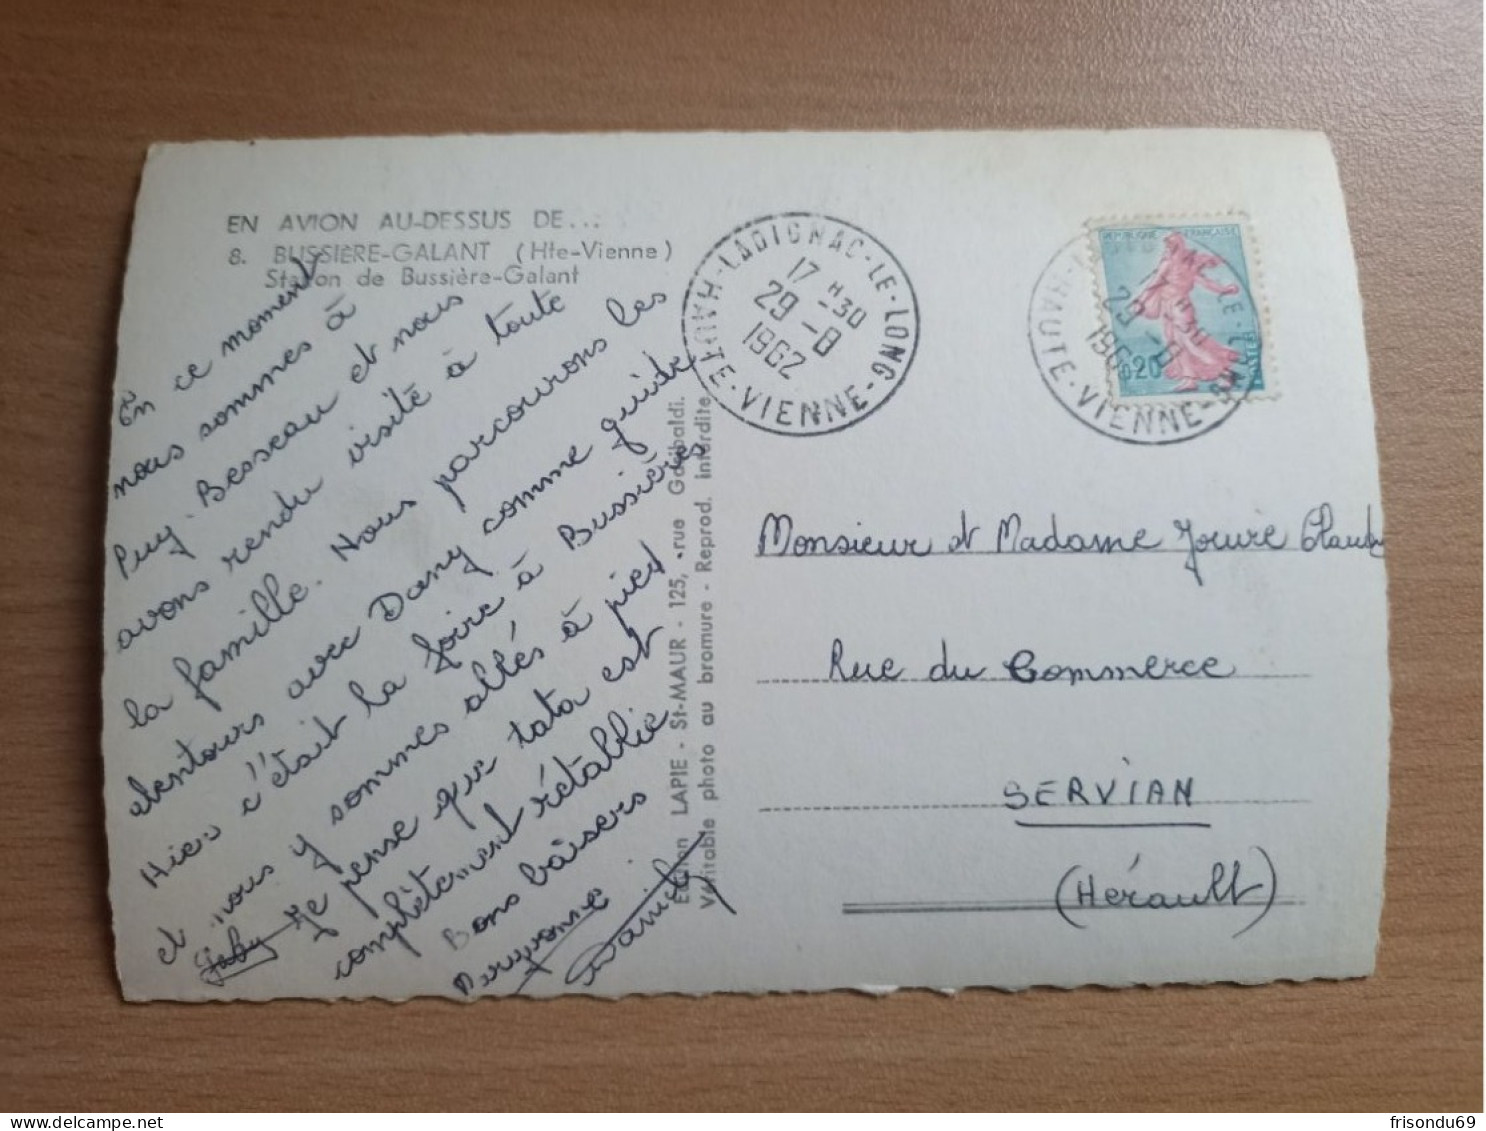 EN AVION AU-DESSUS DE...
8. BUSSIÈRE-GALANT (Hte-Vienne)
Station de Bussière-Galant
En ce moment
nous sommes à
Puy. Besseau et nous
avons rendu visité à toute
la famille. Nous parcourons les
alentours avec Dany comme guide
Hier c'était la foire à Bussière
et nous y sommes allés à pied
Je pense que tata est
complètement rétablie
Bons baisers
Gaby
Daniel
Edition LAPIE - St-MAUR - 125, rue Garibaldi.
Véritable photo au bromure - Reprod. interdite
LADIGNAC-LE-LONG
17 H 30
29-8
1962
HAUTE-VIENNE
REPUBLIQUE FRANÇAISE
0,20
LE-LONG
30
29-8
196
HAUTE-VIENNE
Monsieur et Madame Jouve Claude
Rue du Commerce
SERVIAN
(Hérault)
frisondu69